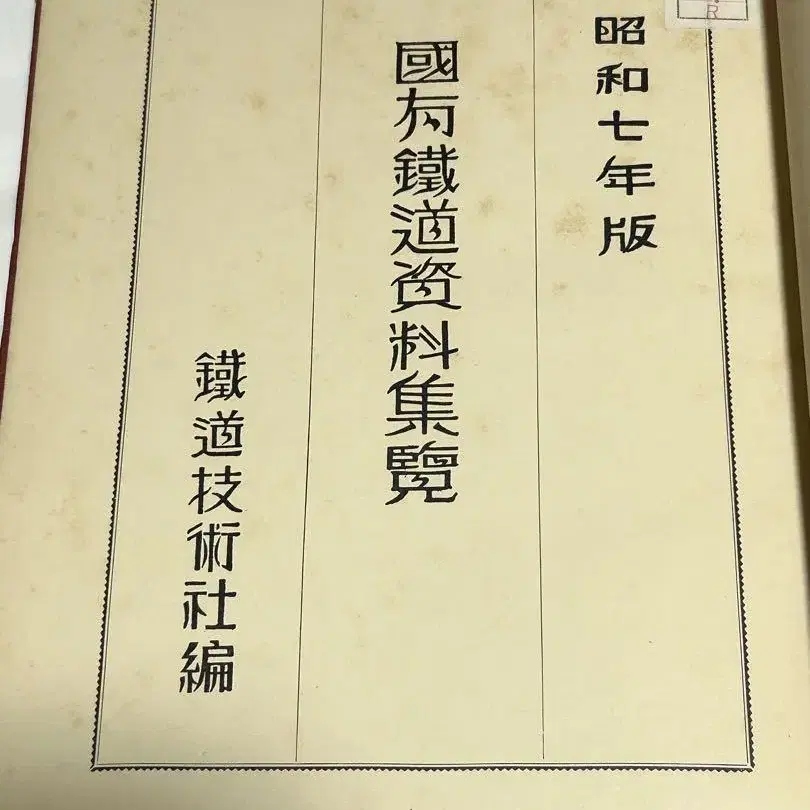 昭和七年版
國有鐵道資料集覽
鐵道技術社編
R